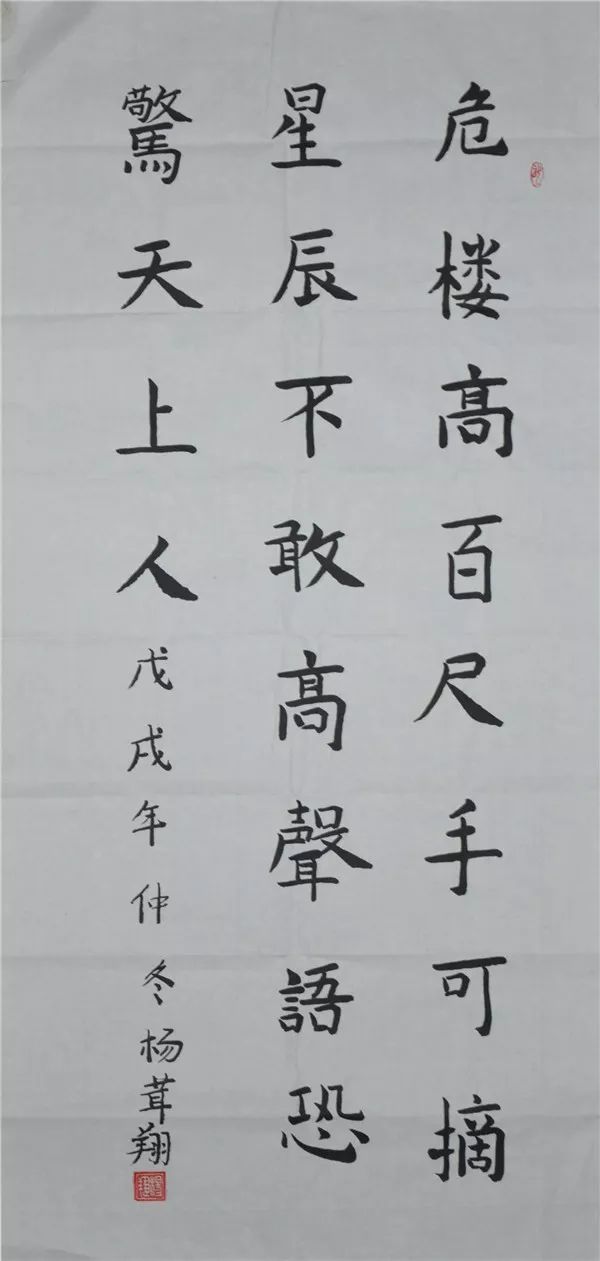 危楼髙百尺手可摘
星辰不敢髙聲語恐
驚天上人戊戌年仲冬杨茸翔